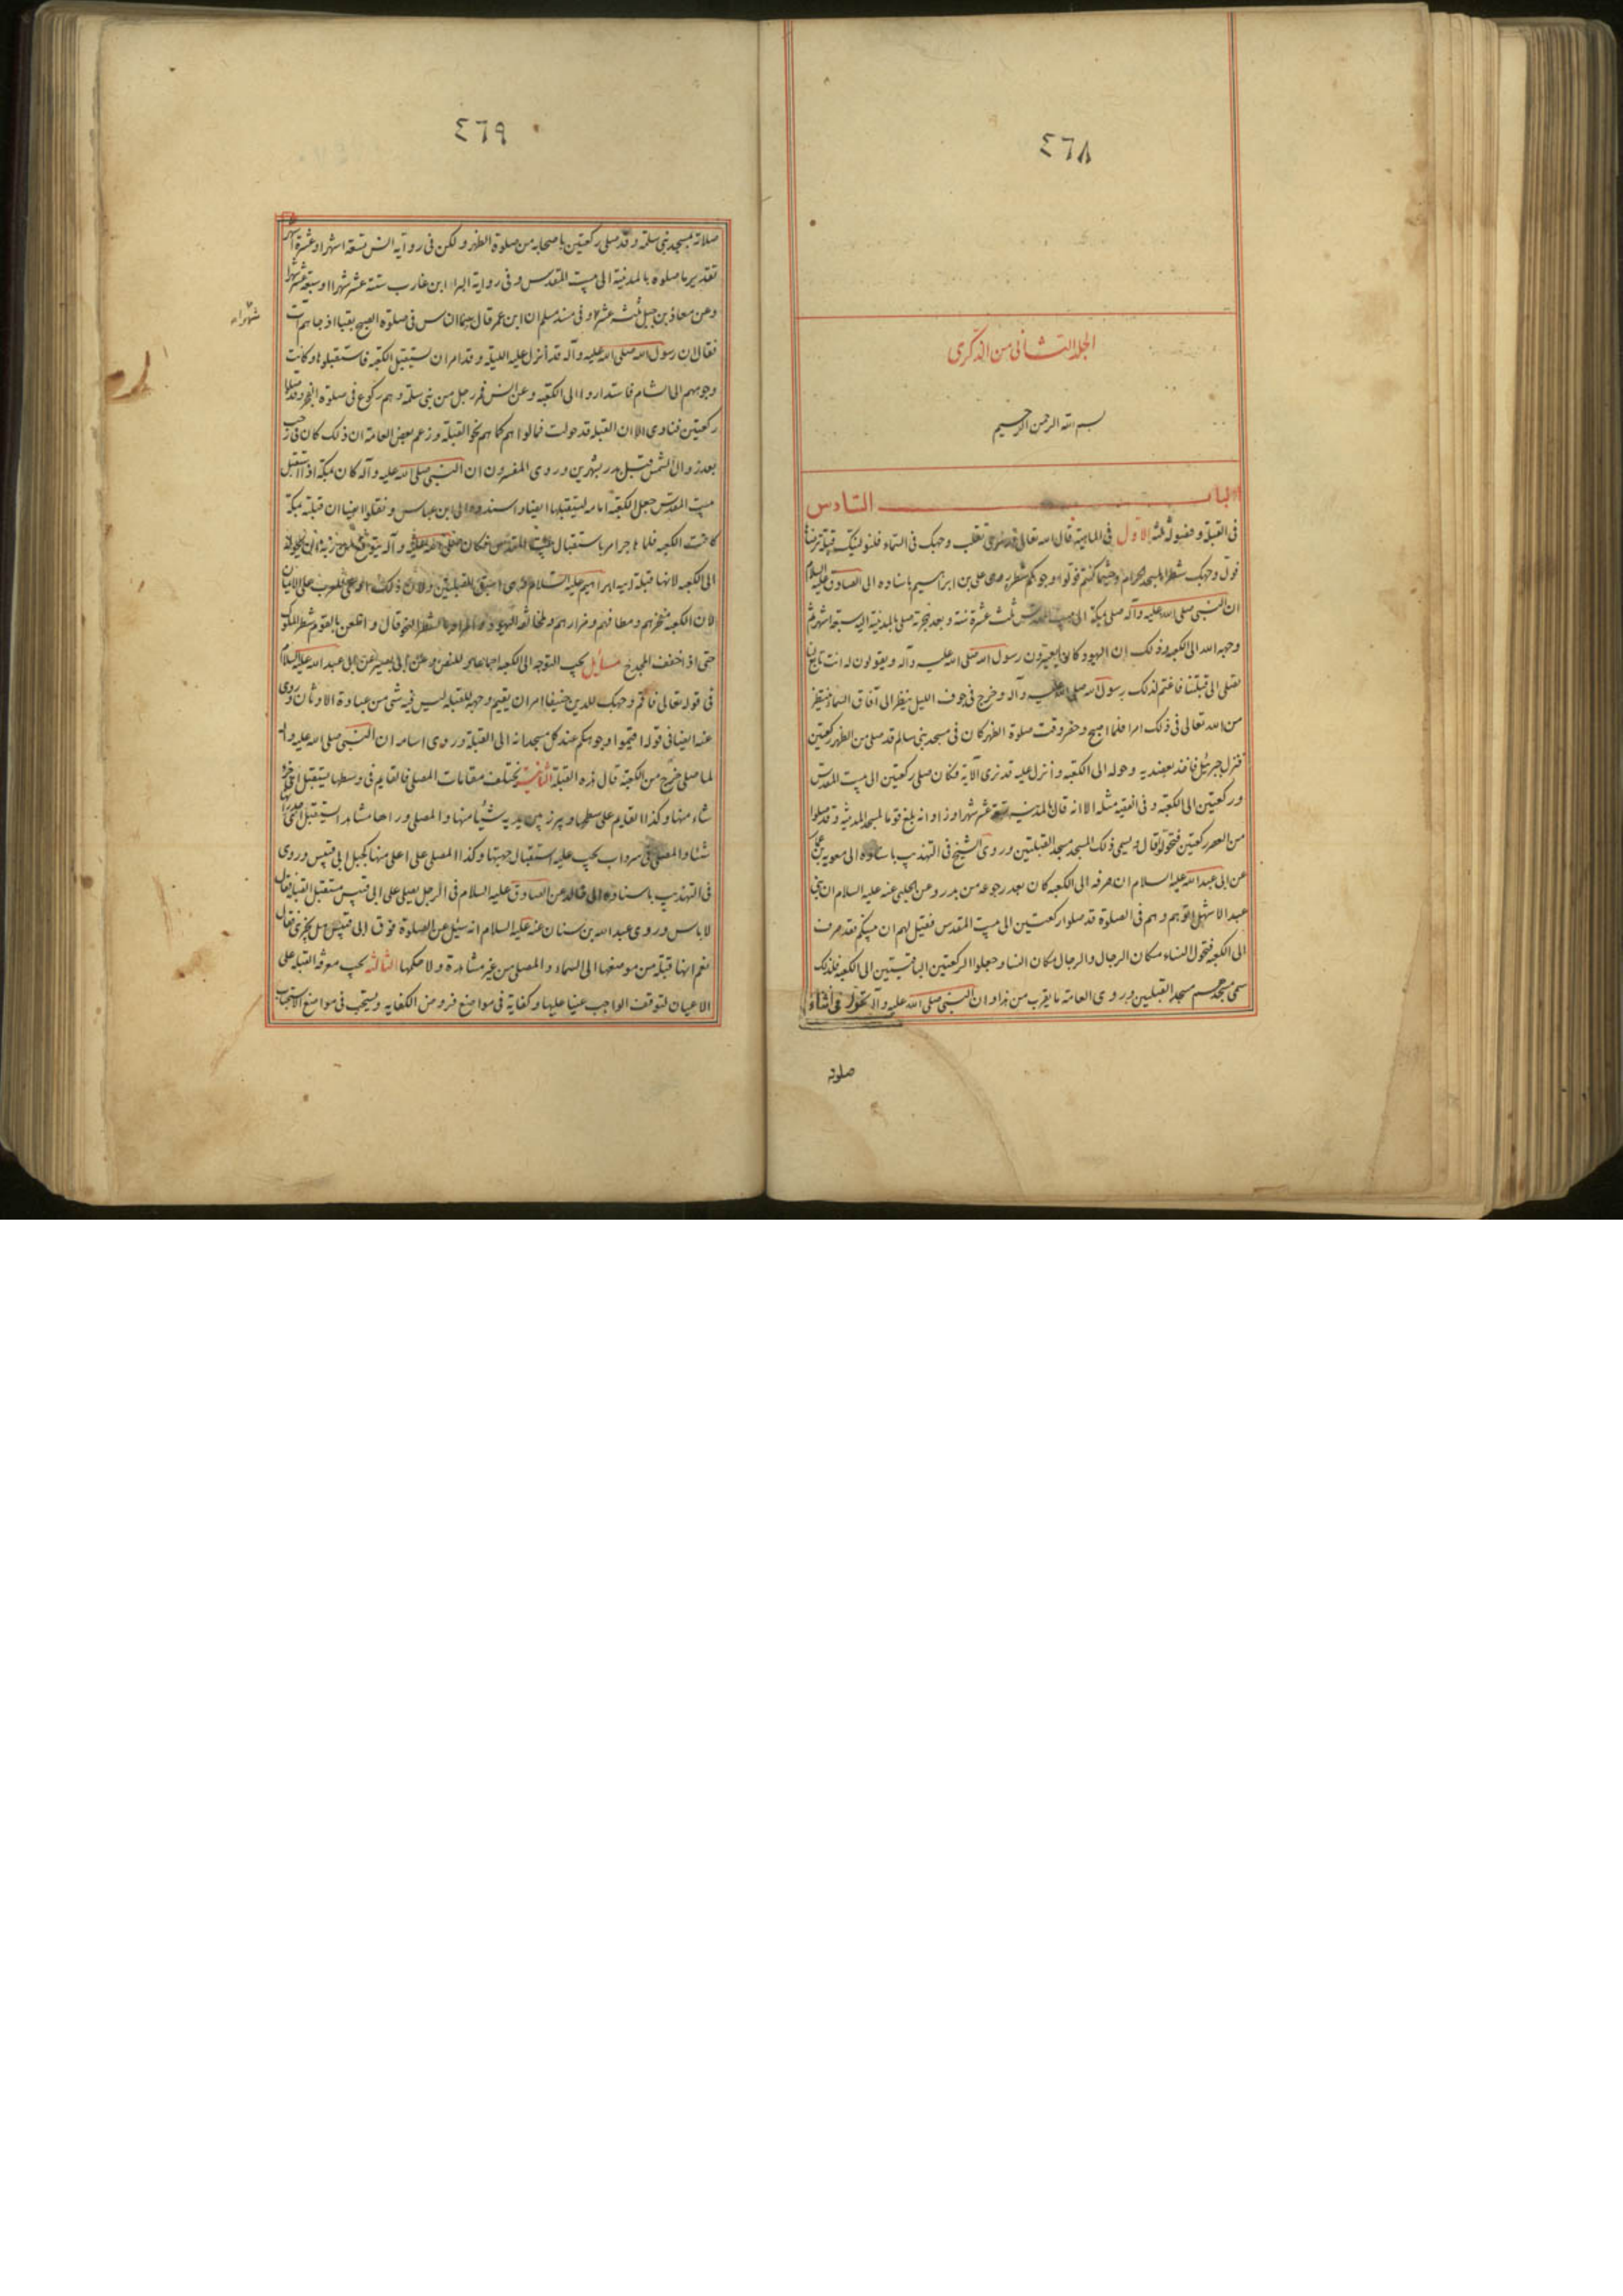 ٤٦٨
الجلد الثانى من الذكرى
بسم الله الرحمن الرحيم
الباب السادس
فى القبلة و فصوله ثلثة الاول فى الماهية قال الله تعالى قد نرى تقلب وجهك فى السماء فلنولينك قبلة ترضاها
فول وجهك شطر المسجد الحرام وحيثما كنتم فولوا وجوهكم شطره روى على بن ابراهيم باسناده الى الصادق عليه السلام
ان النبى صلى الله عليه وآله صلى بمكة الى بيت المقدس ثلث عشرة سنة و بعد هجرته صلى بالمدينة اليه سبعة اشهر ثم
وجهه الله الى الكعبة و ذلك ان اليهود كانوا يعيرون رسول الله صلى الله عليه وآله و يقولون له انت تابع لنا
تصلى الى قبلتنا فاغتم لذلك رسول الله صلى الله عليه وآله و خرج فى جوف الليل ينظر الى آفاق السماء ينتظر
من الله تعالى فى ذلك امرا فلما اصبح وحضر وقت صلوة الظهر كان فى مسجد بنى سالم قد صلى من الظهر ركعتين
فنزل جبرئيل فاخذ بعضديه و حوله الى الكعبة و انزل عليه قد نرى الآية فكان صلى ركعتين الى بيت المقدس
و ركعتين الى الكعبة و فى الفقيه مثله الا انه قال بالمدينة تسعة عشر شهرا و زاد انه بلغ قوما بمسجد المدينة و قد صلوا
من العصر ركعتين فتحولوا قال يسمى ذلك المسجد مسجد القبلتين و روى الشيخ فى التهذيب باسناده الى معوية بن عمار
عن ابى عبد الله عليه السلام ان صرفه الى الكعبة كان بعد رجوعه من بدر و عن الحلبى عنه عليه السلام ان بنى
عبد الاشهل اتوهم و هم فى الصلوة قد صلوا ركعتين الى بيت المقدس فقيل لهم ان نبيكم قد صرف
الى الكعبة فتحول النساء مكان الرجال والرجال مكان النساء و جعلوا الركعتين الباقيتين الى الكعبة فلذلك
سمى مسجدهم مسجد القبلتين و روى العامة ما يقرب من هذا و ان النبى صلى الله عليه و آله تحول فى اثناء
صلوته
٤٦٩
صلاته بمسجد بنى سلمة و قد صلى ركعتين باصحابه من صلوة الظهر و لكن فى رواية انس تسعة اشهر او عشرة اشهر
تقدير ما صلوه بالمدينة الى بيت المقدس و فى رواية البراء ابن عازب ستة عشر شهرا او سبعة عشر شهرا
وعن معاذ بن جبل ثلثة عشر و فى مسند مسلم ان ابن عمر قال بينما الناس فى صلوة الصبح بقبا اذ جاءهم آت
شهرا
فقال ان رسول الله صلى الله عليه و آله قد أنزل عليه الليلة و قد امر ان يستقبل الكعبة فاستقبلوها و كانت
وجوههم الى الشام فاستداروا الى الكعبة و عن انس فمر رجل من بنى سلمة و هم ركوع فى صلوة الفجر وقد صلوا
ركعتين فنادى الا ان القبلة قد حولت فمالوا هم كما هم نحو القبلة و زعم بعض العامة ان ذلك كان فى رجب
بعد زوال الشمس قبل بدر بشهرين و روى المفسرون ان النبى صلى الله عليه و آله كان بمكة اذا استقبل
بيت المقدس جعل الكعبة امامه ليستقبلها ايضا و اسندوه الى ابن عباس و نقلوا ايضا ان قبلته بمكة
كانت الكعبة فلما هاجر امر باستقبال بيت المقدس فكان صلى الله عليه و آله يتوقع من ربه ان يحوله
الى الكعبة لانها قبلة ابيه ابراهيم عليه السلام و هى اسبق القبلتين و لان ذلك ادعى للعرب الى الايمان
لان الكعبة مفخرهم و مطافهم و مزارهم و لمخالفة اليهود و المراد بالشطر النحو قال و اظعن بالقوم شطر الملوك
حتى اذا خفق المجدح مسائل يجب التوجه الى الكعبة اجماعا للنص و عن ابى بصير عن ابى عبد الله عليه السلام
فى قوله تعالى فاقم وجهك للدين حنيفا امر ان يقيم وجهه للقبلة ليس فيه شئ من عبادة الاوثان و روى
عنه ايضا فى قوله اقيموا وجوهكم عند كل مسجد انه الى القبلة و روى اسامة ان النبى صلى الله عليه و آله
لما صلى خرج من الكعبة قال هذه القبلة الثانية يختلف مقامات المصلى فالقايم فى وسطها يستقبل اى جزء
شاء منها و كذا القايم على سطحها و يبرز بين يديه شيئا منها و المصلى وراءها مشاهدا يستقبل اى جدرانها
شاء و المصلى فى سرداب يجب عليه استقبال جهتها و كذا المصلى على اعلى منها كجبل ابى قبيس و روى
فى التهذيب باسناده الى خالد عن الصادق عليه السلام فى الرجل يصلى على ابى قبيس مستقبل القبلة فقال
لا باس و روى عبد الله بن سنان عنه عليه السلام انه سئل عن الصلوة فوق ابى قبيس هل يجزى فقال
نعم انها قبلة من موضعها الى السماء و المصلى من غير مشاهدة و لا حكمها الثالثة يجب معرفة القبلة على
الاعيان لتوقف الواجب عينا عليها و كفاية فى مواضع فروض الكفاية و يستحب فى مواضع الاستحباب